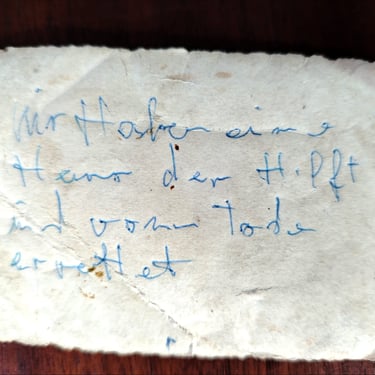 Wir Haben eine
Herr der Hilft
und vom Tode
errettet